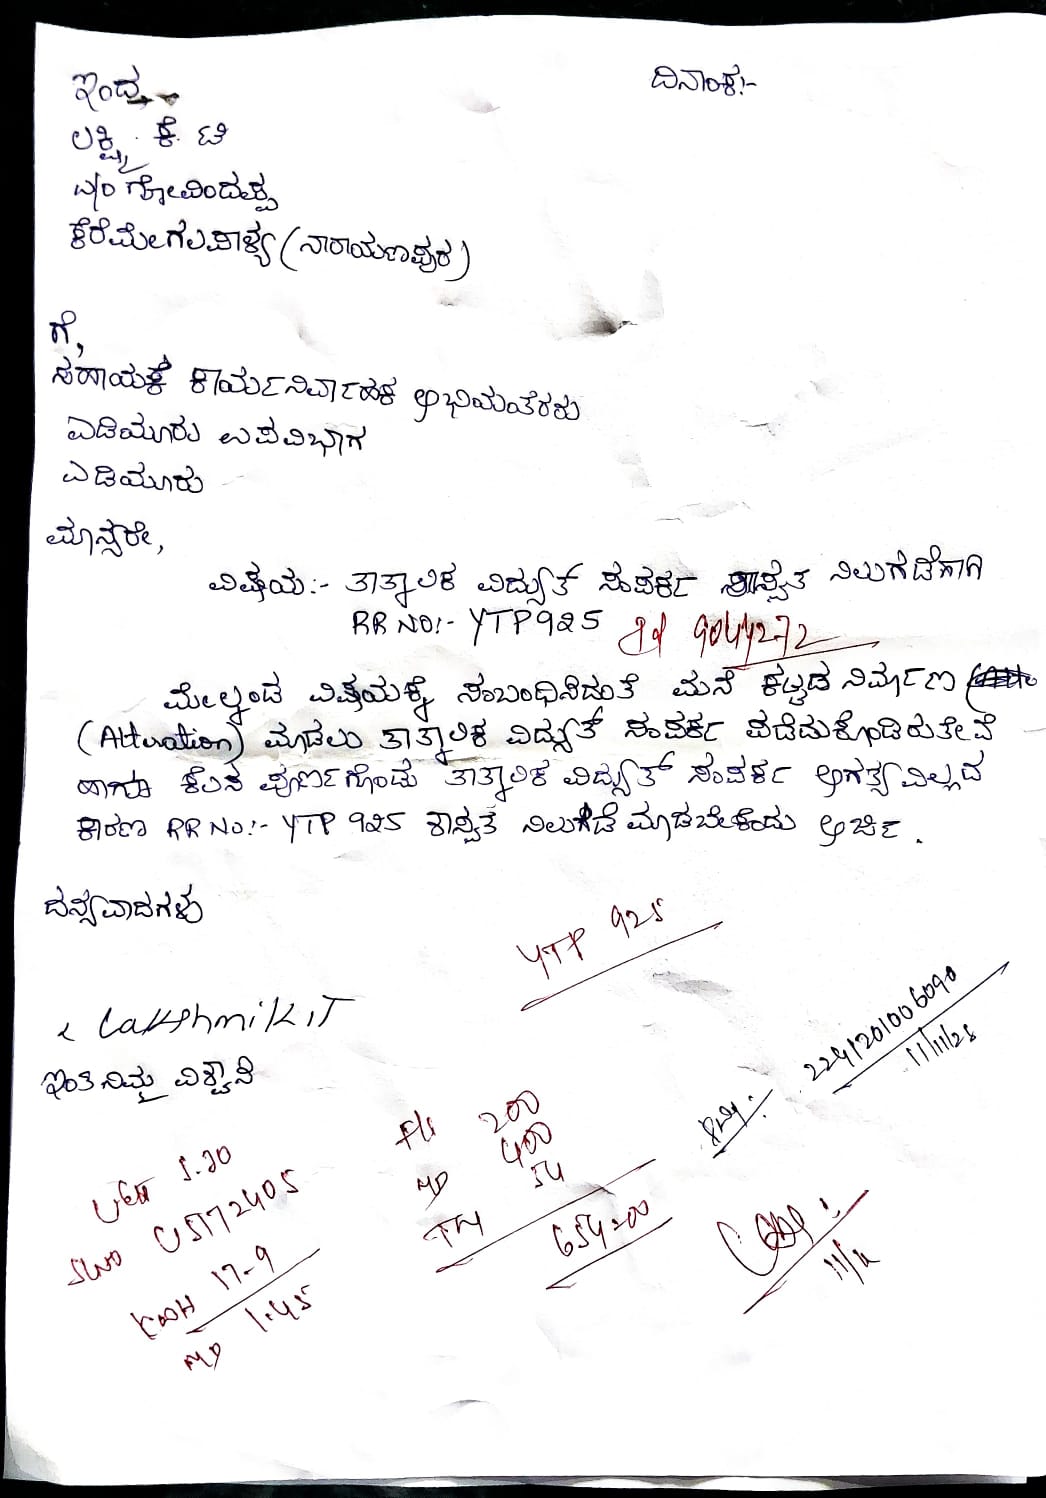 ಇಂದ
ದಿನಾಂಕ:-
ಲಕ್ಷ್ಮಿ. ಕೆ. ಟಿ
W/o ಗೋವಿಂದಪ್ಪ
ಕೆರೆಮೇಗಲಪಾಳ್ಯ (ನಾರಾಯಣಪುರ)
ಗೆ,
ಸಹಾಯಕ ಕಾರ್ಯನಿರ್ವಾಹಕ ಅಭಿಯಂತರರು
ಎಡಿಯೂರು ಉಪವಿಭಾಗ
ಎಡಿಯೂರು
ಮಾನ್ಯರೇ,
ವಿಷಯ:- ತಾತ್ಕಾಲಿಕ ವಿದ್ಯುತ್ ಸಂಪರ್ಕ ಶಾಸ್ವತ ನಿಲುಗಡೆಗಾಗಿ
RR NO:- YTP925 Id 9044272
ಮೇಲ್ಕಂಡ ವಿಷಯಕ್ಕೆ ಸಂಬಂಧಿಸಿದಂತೆ ಮನೆ ಕಟ್ಟಡ ನಿರ್ಮಾಣ
(Altuvation) ಮಾಡಲು ತಾತ್ಕಾಲಿಕ ವಿದ್ಯುತ್ ಸಂಪರ್ಕ ಪಡೆದುಕೊಂಡಿರುತೇವೆ
ಹಾಗೂ ಕೆಲಸ ಪೂರ್ಣಗೊಂಡು ತಾತ್ಕಾಲಿಕ ವಿದ್ಯುತ್ ಸಂಪರ್ಕ ಅಗತ್ಯವಿಲ್ಲದ
ಕಾರಣ RR No:- YTP 925 ಶಾಸ್ವತ ನಿಲುಗಡೆ ಮಾಡಬೇಕೆಂದು ಅರ್ಜಿ.
ದನ್ಯವಾದಗಳು
YTP 925
Lakshmi K.T
ಇಂತಿ ನಿಮ್ಮ ವಿಶ್ವಾಸಿ
2241201006090
11/11/25
F/s 200
MD 400
TM 54
654=00
11/11
SLNO U5172405
KWH 17-9
MD 1.45